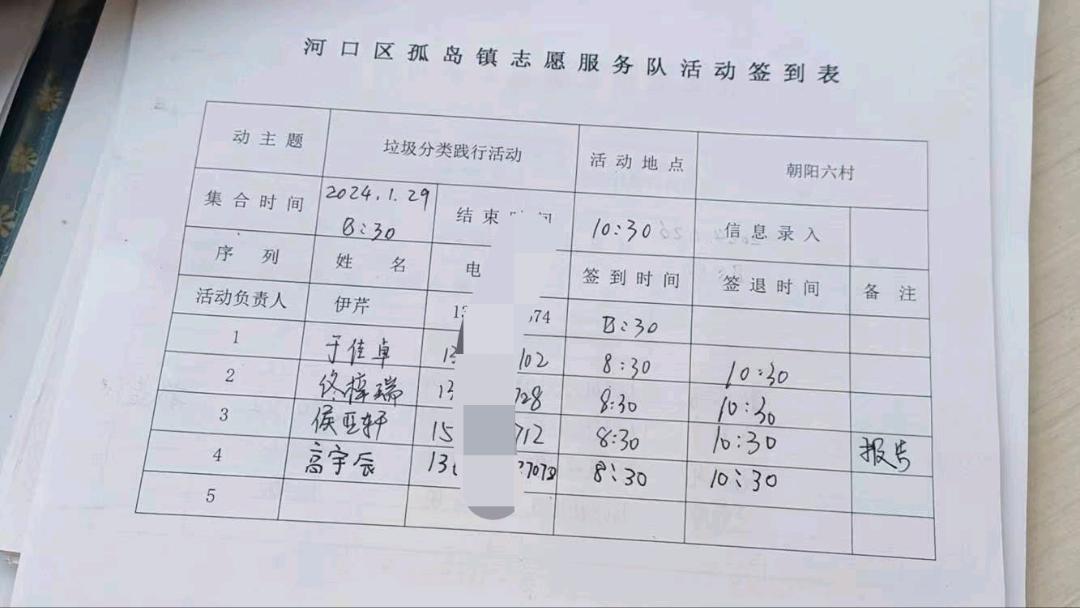 河口区孤岛镇志愿服务队活动签到表
动主题 垃圾分类践行活动 活动地点 朝阳六村
集合时间 2024.1.29 8:30 结束时间 10:30 信息录入
序列 姓名 电 签到时间 签退时间 备注
活动负责人 伊芹 13 574 8:30
1 于佳卓 13 102 8:30 10:30
2 佟梓瑞 13 728 8:30 10:30
3 侯亚轩 15 712 8:30 10:30 报告
4 高宇辰 130 7078 8:30 10:30
5